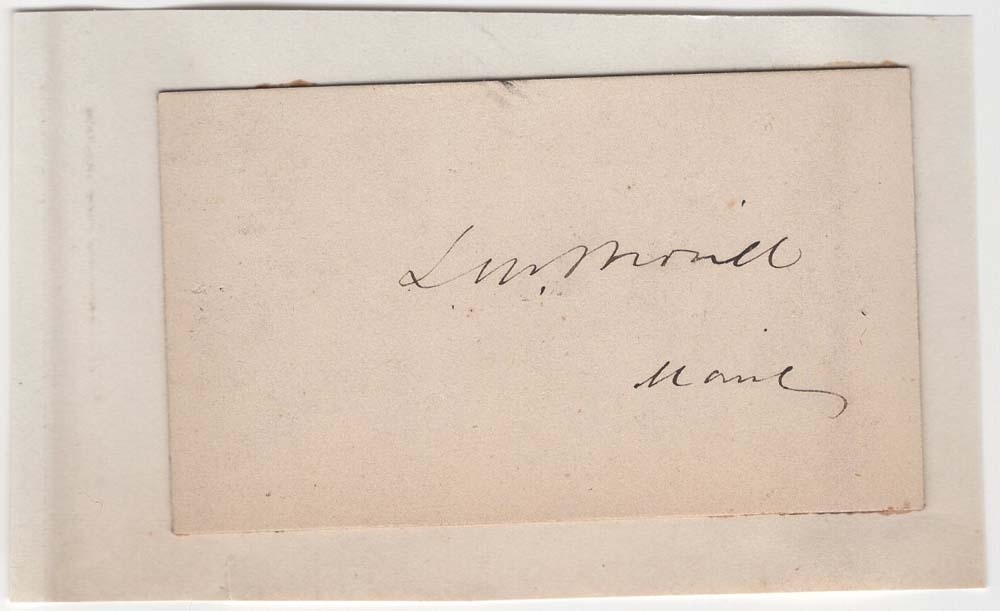 L. M. Morrill
Maine